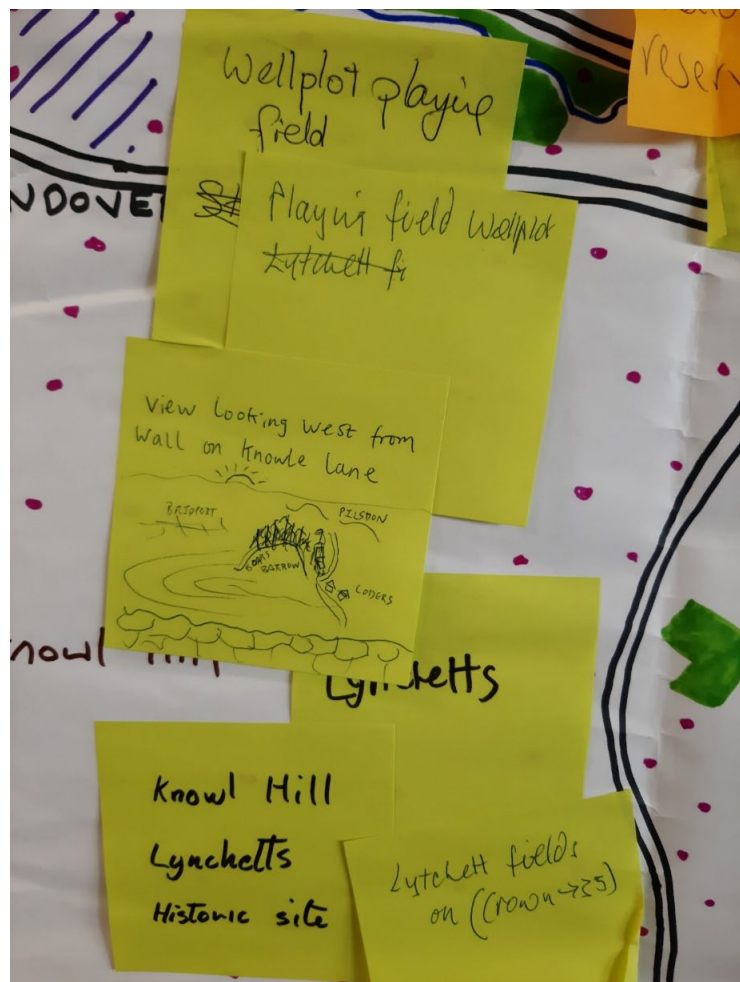 reserv
Wellplot playing
field
NDOVE
Playing field Wellplot
Lytchett fi
View looking west from
Wall on Knowle lane
BRIDPORT
PILSDON
BARROW
LODERS
nowl Hill
Lynchetts
Knowl Hill
Lynchetts
Historic site
Lytchett fields
on (Crown → 35)